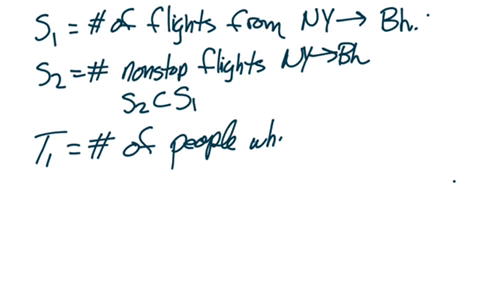 S₁ = # of flights from NY → Bh.
S₂ = # nonstop flights NY → Bh
S₂ ⊂ S₁
T₁ = # of people wh.